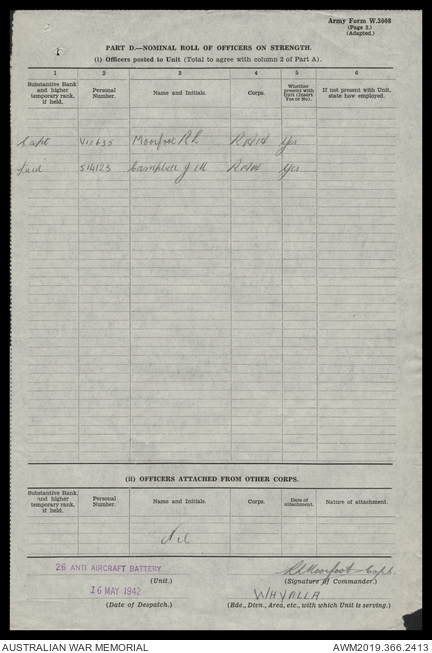 Army Form W.3008
(Page 2.)
(Adapted.)
PART D.—NOMINAL ROLL OF OFFICERS ON STRENGTH.
(i) Officers posted to Unit (Total to agree with column 2 of Part A).
1 2 3 4 5 6
Substantive Rank and higher temporary rank, if held. Personal Number. Name and Initials. Corps. Whether present with Unit (Insert Yes or No). If not present with Unit, state how employed.
Capt Moorfoot R L RAA Yes
Lieut Campbell J M RAA Yes
(ii) OFFICERS ATTACHED FROM OTHER CORPS.
Substantive Rank, and higher temporary rank, if held. Personal Number. Name and Initials. Corps. Date of attachment. Nature of attachment.
Nil
26 ANTI AIRCRAFT BATTERY RLMoorfoot Capt
(Unit.) (Signature of Commander.)
16 MAY 1942 WHYALLA
(Date of Despatch.) (Bde., Divn., Area, etc., with which Unit is serving.)
AUSTRALIAN WAR MEMORIAL AWM2019.366.2413